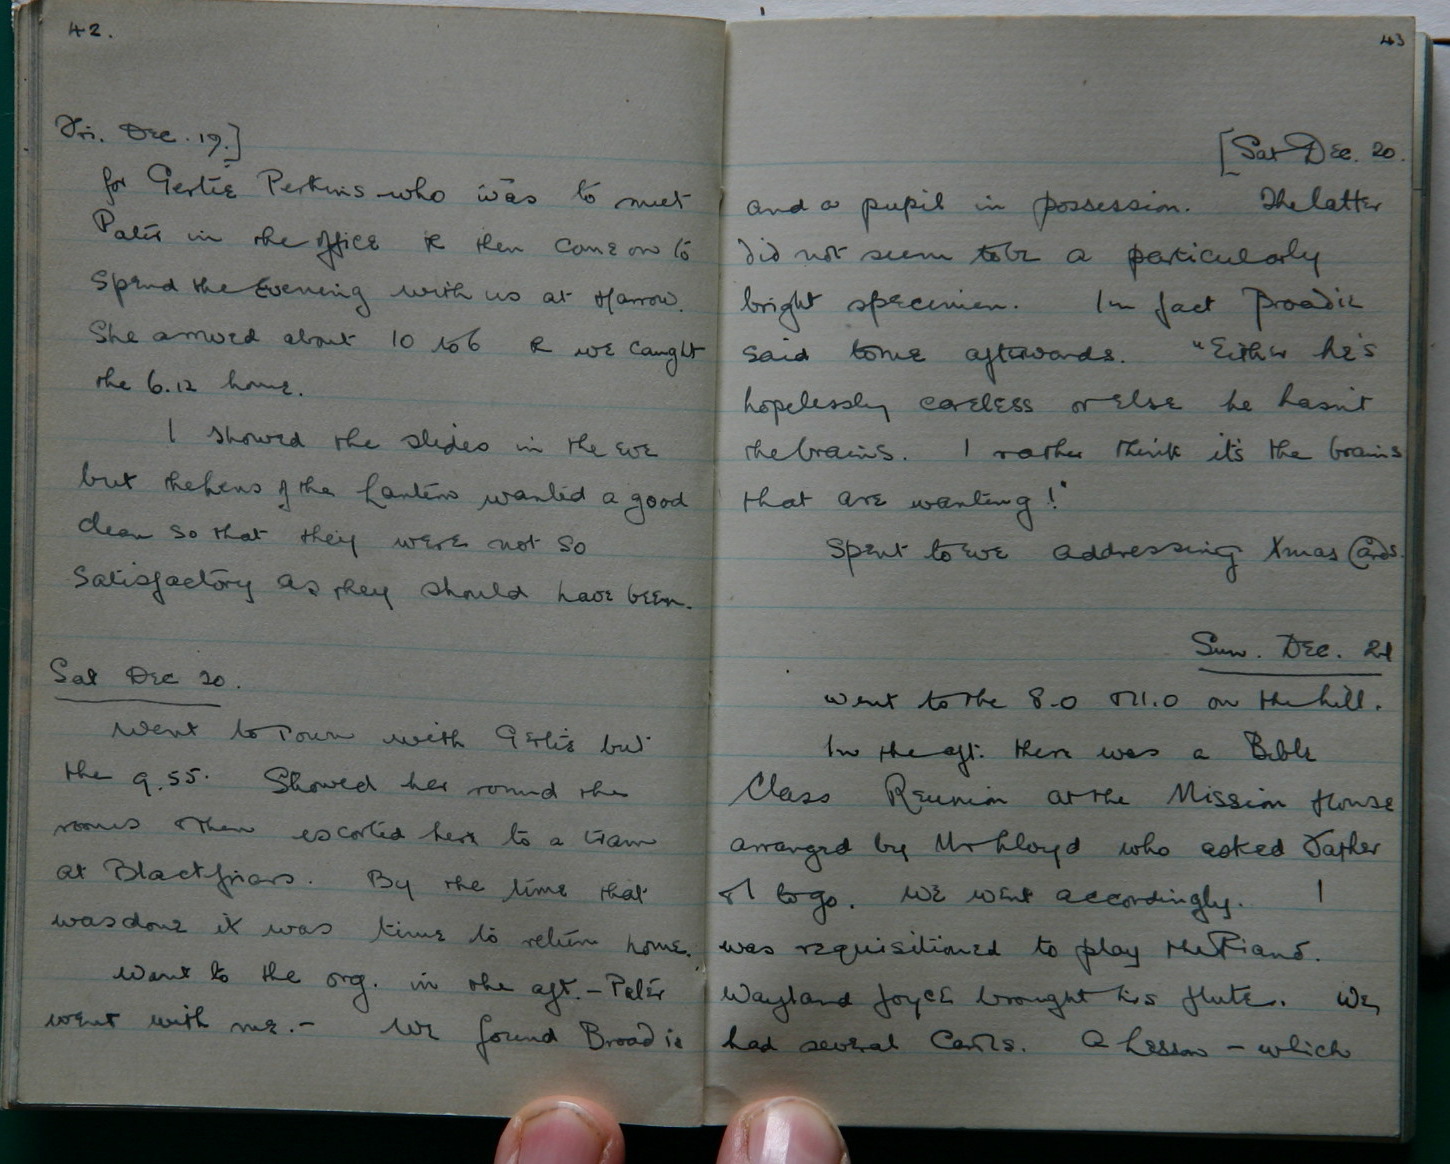 42.
Fri. Dec. 19.]
for Gertie Perkins who was to meet
Pater in the office & then come on to
spend the evening with us at Harrow.
She arrived about 10 to 6 & we caught
the 6.12 home.
I showed the slides in the eve
but the lens of the Lantern wanted a good
clean so that they were not so
satisfactory as they should have been.
Sat Dec 20.
Went to Town with Gertie but
the 9.55. Showed her round the
rooms & then escorted her to a tram
at Blackfriars. By the time that
was done it was time to return home.
Went to the org. in the aft. – Pater
went with me. – We found Broadie
43
[Sat Dec. 20.
and a pupil in possession. The latter
did not seem to be a particularly
bright specimen. In fact Broadie
said to me afterwards. "Either he's
hopelessly careless or else he hasn't
the brains. I rather think it's the brains
that are wanting!"
Spent to eve addressing Xmas Cards.
Sun. Dec. 21
Went to the 8.0 & 11.0 on the hill.
In the aft. there was a Bible
Class Reunion at the Mission House
arranged by Mr Lloyd who asked Father
& I to go. We went accordingly. I
was requisitioned to play the Piano.
Wayland Joyce brought his flute. We
had several Carols. A Lesson – which